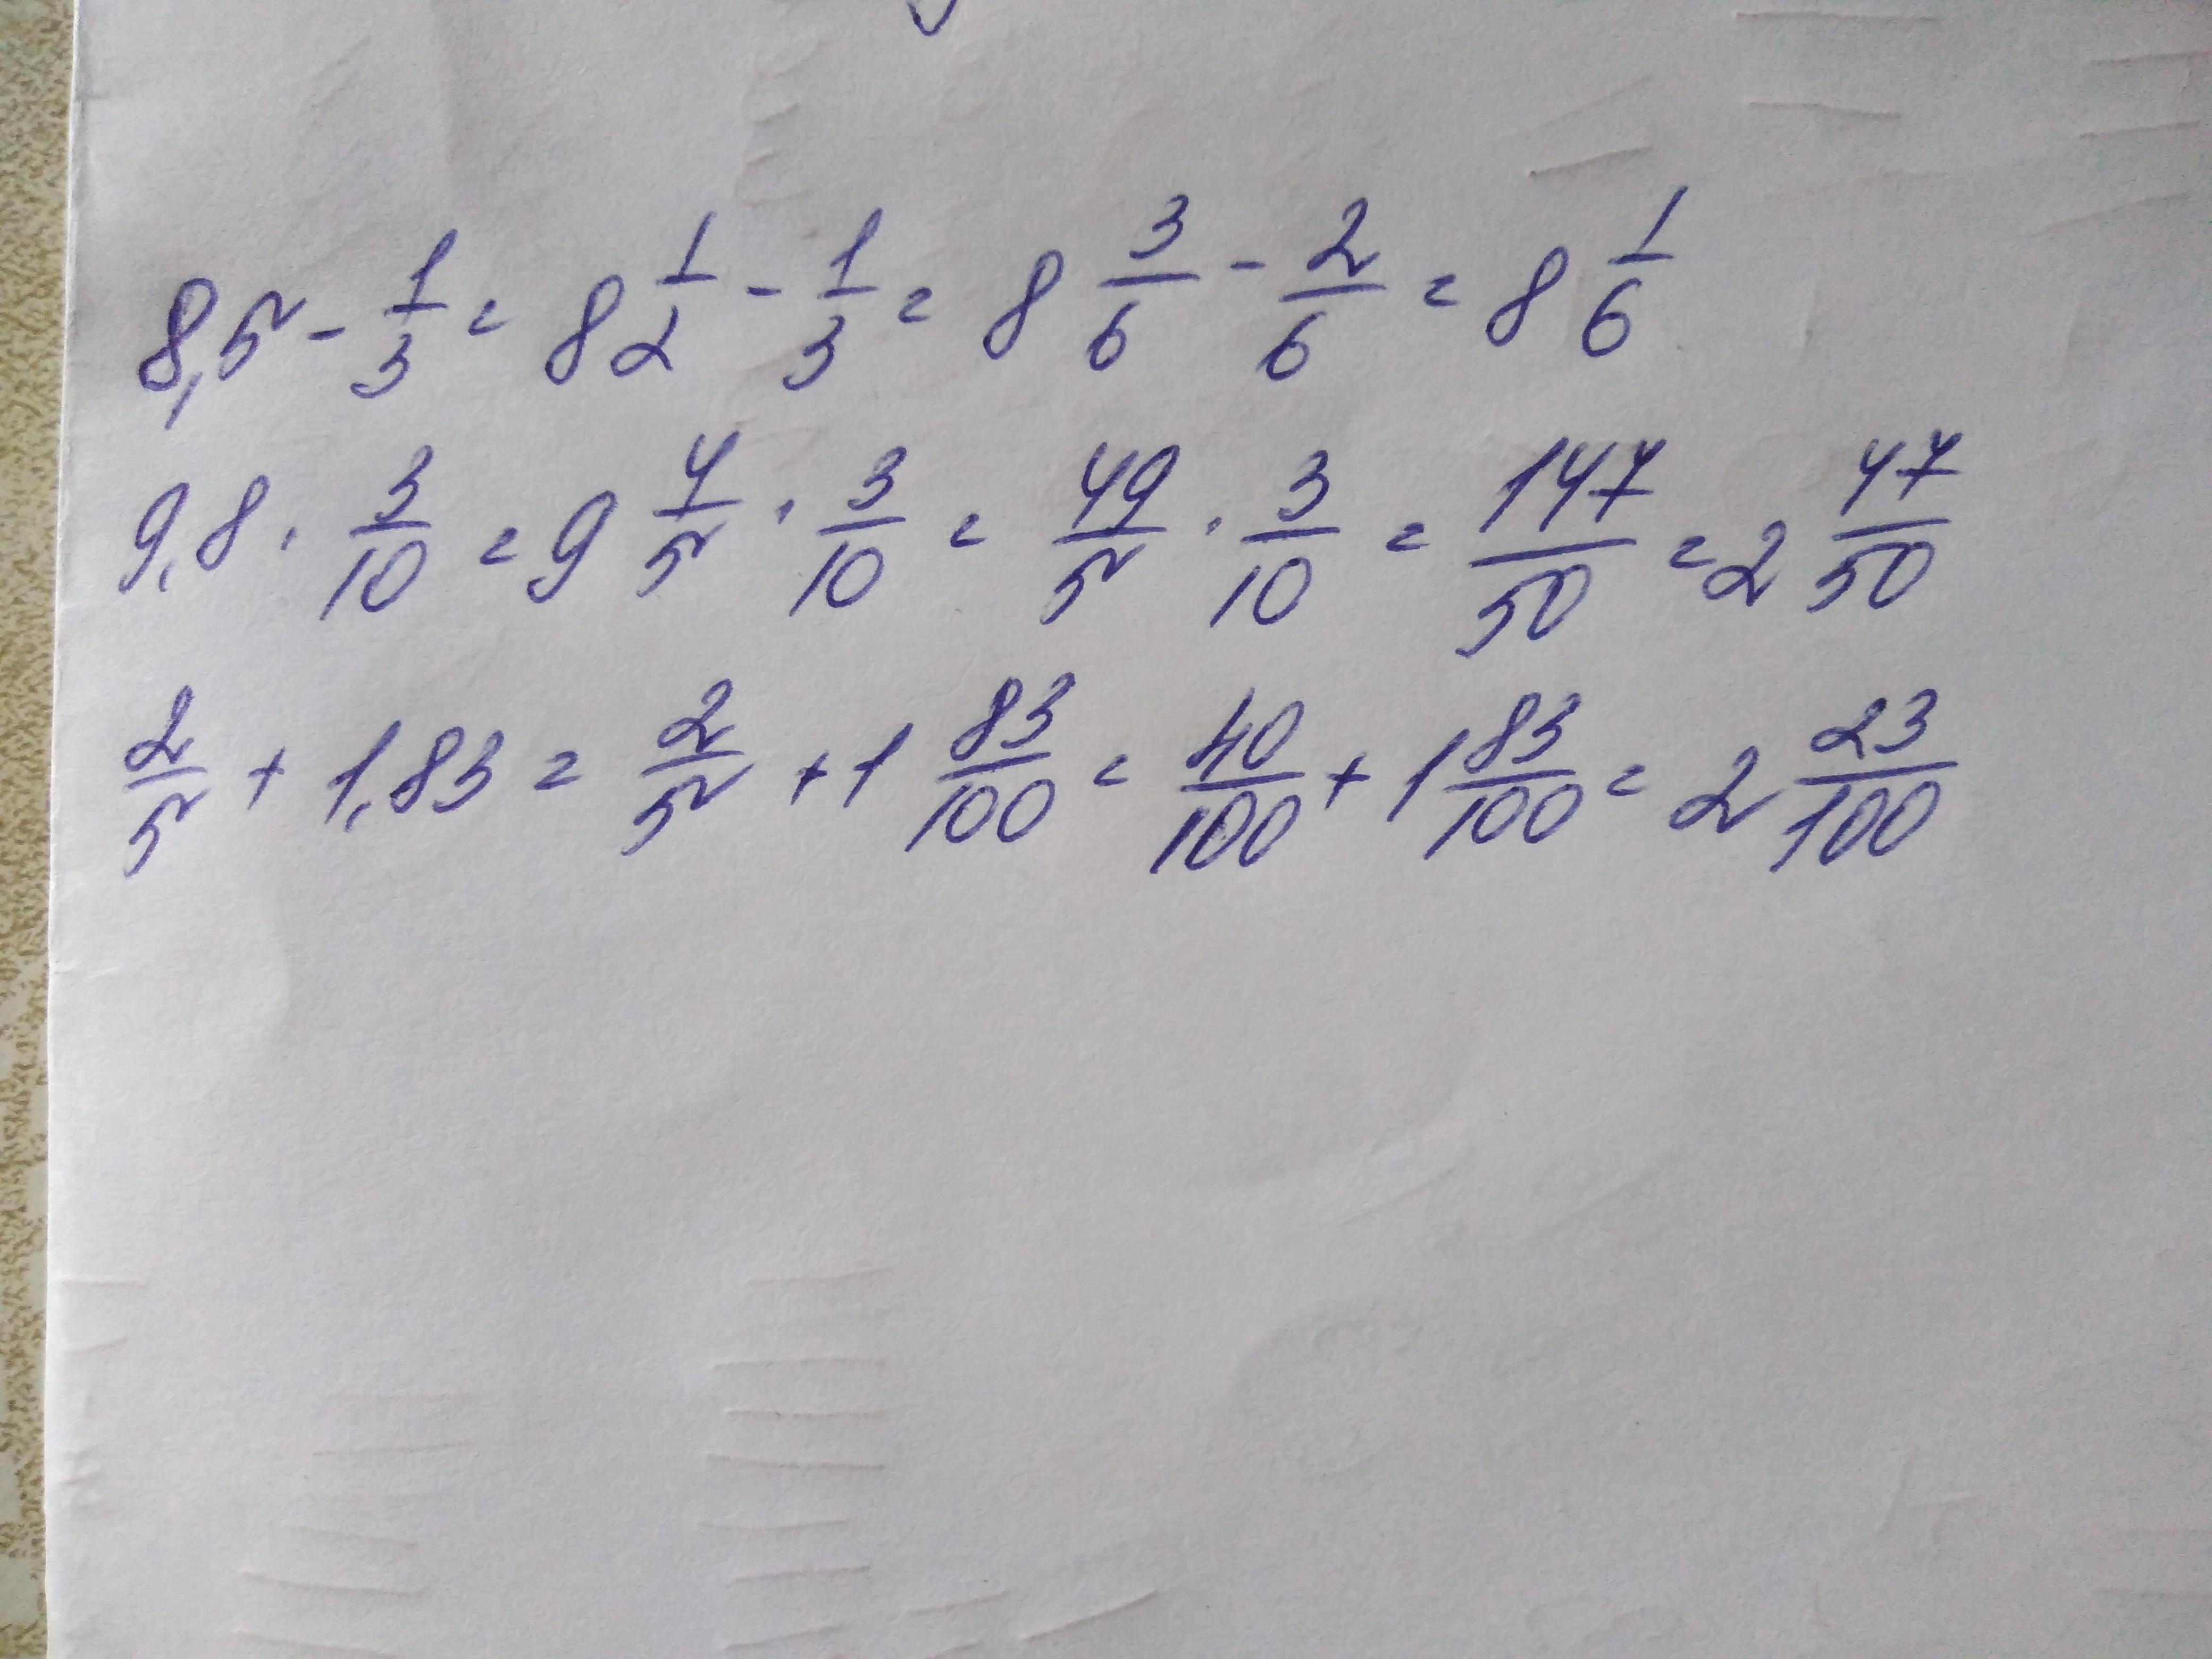 8,5 - 1/3 = 8 1/2 - 1/3 = 8 3/6 - 2/6 = 8 1/6
9,8 · 3/10 = 9 4/5 · 3/10 = 49/5 · 3/10 = 147/50 = 2 47/50
2/5 + 1,83 = 2/5 + 1 83/100 = 40/100 + 1 83/100 = 2 23/100